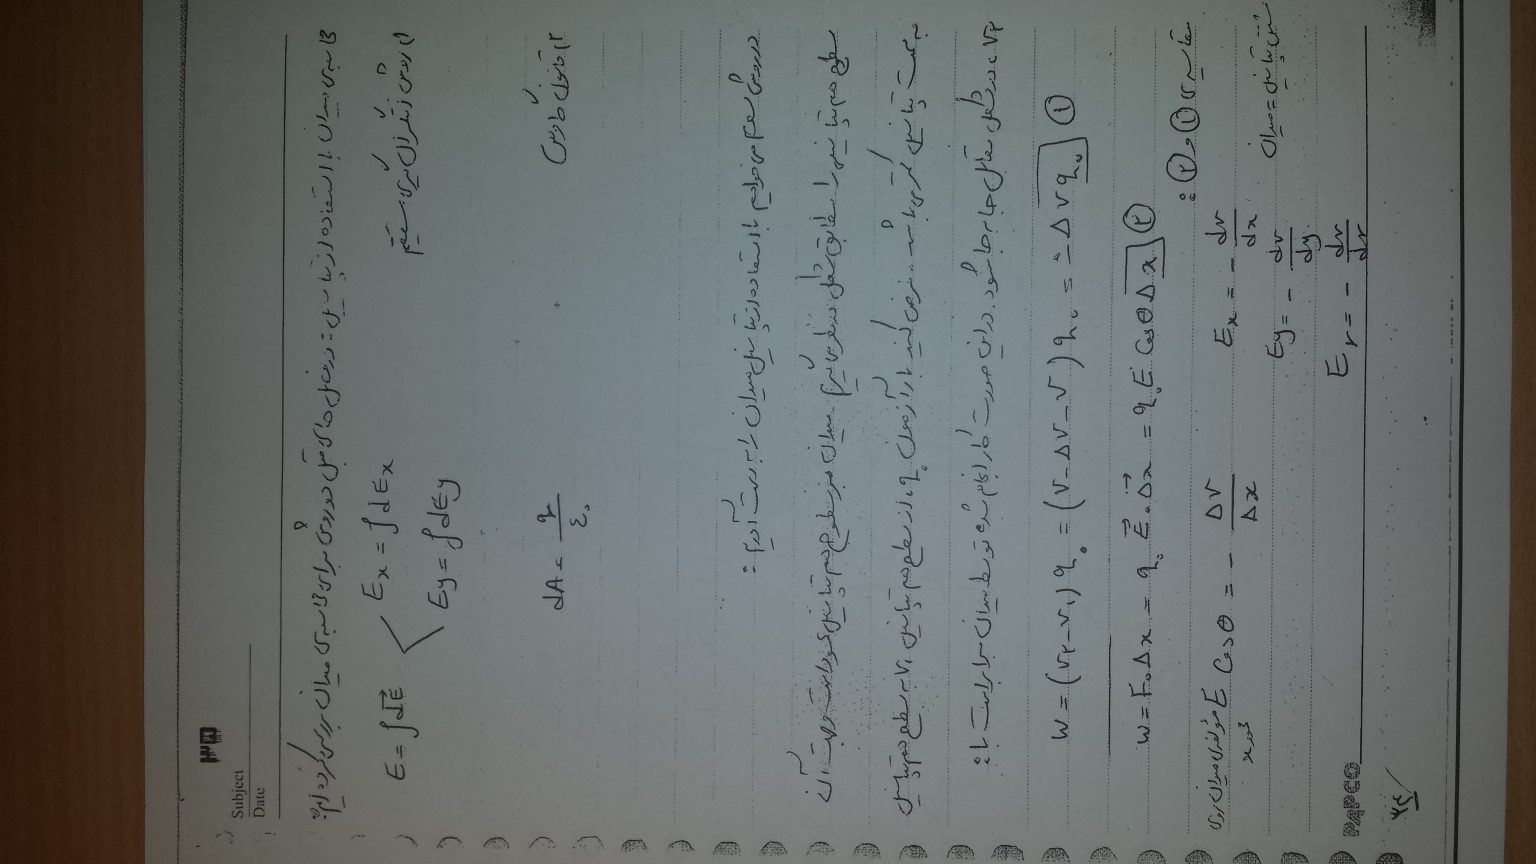 Subject
Date
محاسبه‌ی میدان با استفاده از پتانسیل: در فصل های قبل دو روش برای محاسبه‌ی میدان بررسی کرده ایم:
۱) روش انتگرال گیری مستقیم E = ∫dE⃗ Ex = ∫dEx
Ey = ∫dEy
۲) قانون گاوس dA = q/ε₀
در روش سوم می خواهیم با استفاده از پتانسیل میدان را به دست آوریم:
سطح هم پتانسیل را مطابق شکل در نظر می گیریم. میدان بر سطوح هم پتانسیل عمود است و جهت آن
به سمت پتانسیل کمتری باشد. فرض کنید بار آزمون q₀ از سطح هم پتانسیل V₁ به سطح هم پتانسیل
V₂ در شکل مقابل جابه جا شود. در این صورت کار انجام شده توسط میدان برابر است با:
W = (V₂ - V₁) q₀ = (V - ΔV - V) q₀ = -ΔV q₀ ①
W = F.Δx = q₀ E⃗.Δx⃗ = q₀ E Cosθ Δx ②
مقایسه ① و ②:
E Cosθ = - ΔV/Δx Ex = - dV/dx
Ey = - dV/dy
Er = - dV/dr
PAPCO